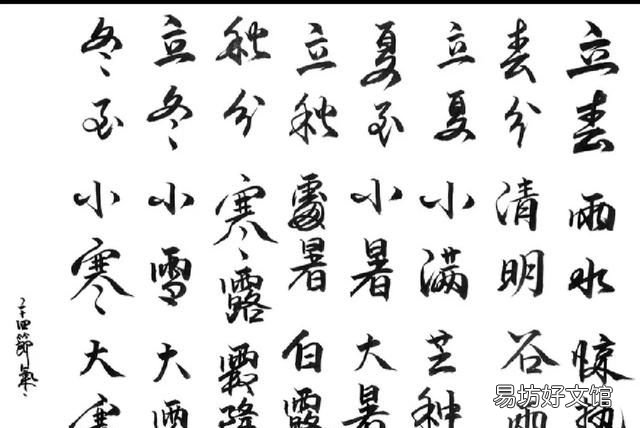 立春雨水惊蛰
春分清明谷雨
立夏小满芒种
夏至小暑大暑
立秋處暑白露
秋分寒露霜降
立冬小雪大雪
冬至小寒大寒
二十四節氣
易坊好文馆